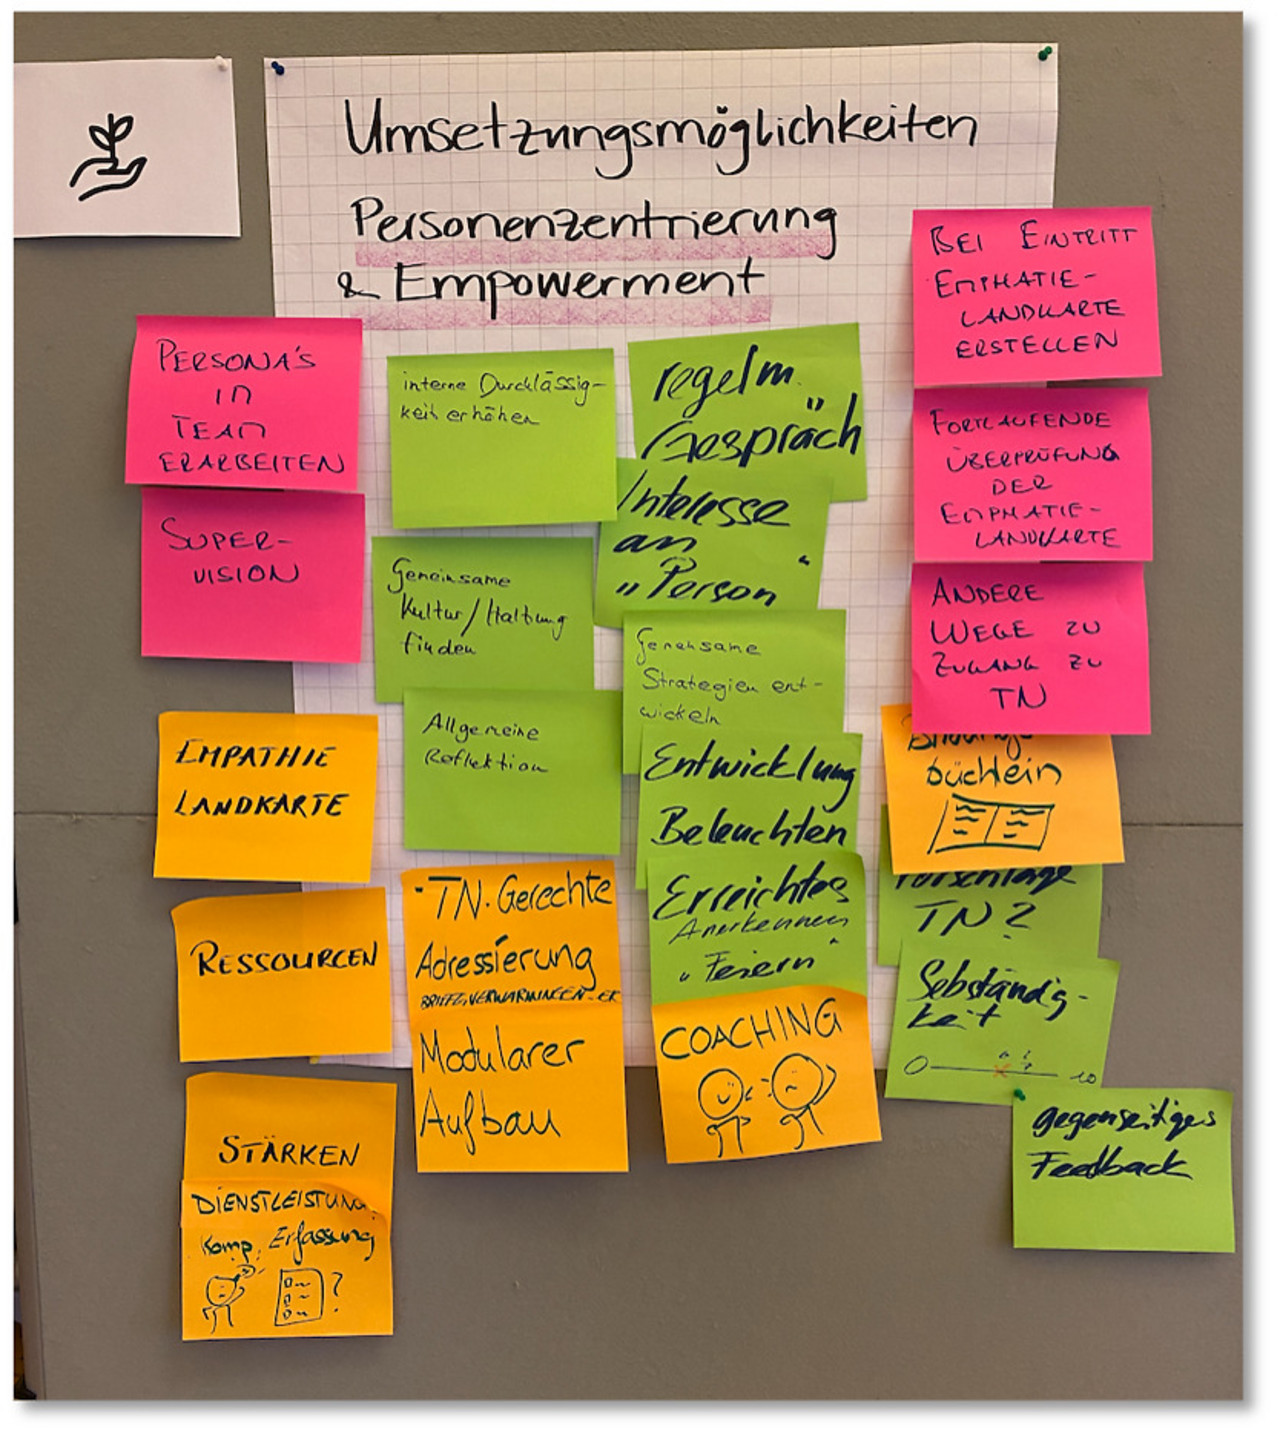 Umsetzungsmöglichkeiten
Personenzentrierung
& Empowerment
PERSONA'S
in
TEAM
ERARBEITEN
SUPER-
VISION
EMPATHIE
LANDKARTE
RESSOURCEN
STÄRKEN
DIENSTLEISTUNG
Komp. Erfassung
?
interne Durchlässig-
keit erhöhen
Gemeinsame
Kultur/Haltung
finden
Allgemeine
Reflektion
- TN. Gerechte
Adressierung
Modularer
Aufbau
regelm.
Gespräch"
Interesse
an
„Person"
Gemeinsame
Strategien ent-
wickeln
Entwicklung
Beleuchten
Erreichtes
Anerkennen
„Feiern"
COACHING
BEI EINTRITT
EMPHATIE-
LANDKARTE
ERSTELLEN
FORTLAUFENDE
ÜBERPRÜFUNG
DER
EMPHATIE-
LANDKARTE
ANDERE
WEGE ZU
ZUGANG ZU
TN
büchlein
Vorschläge
TN?
Sebständig-
keit
0 10
gegenseitiges
Feedback